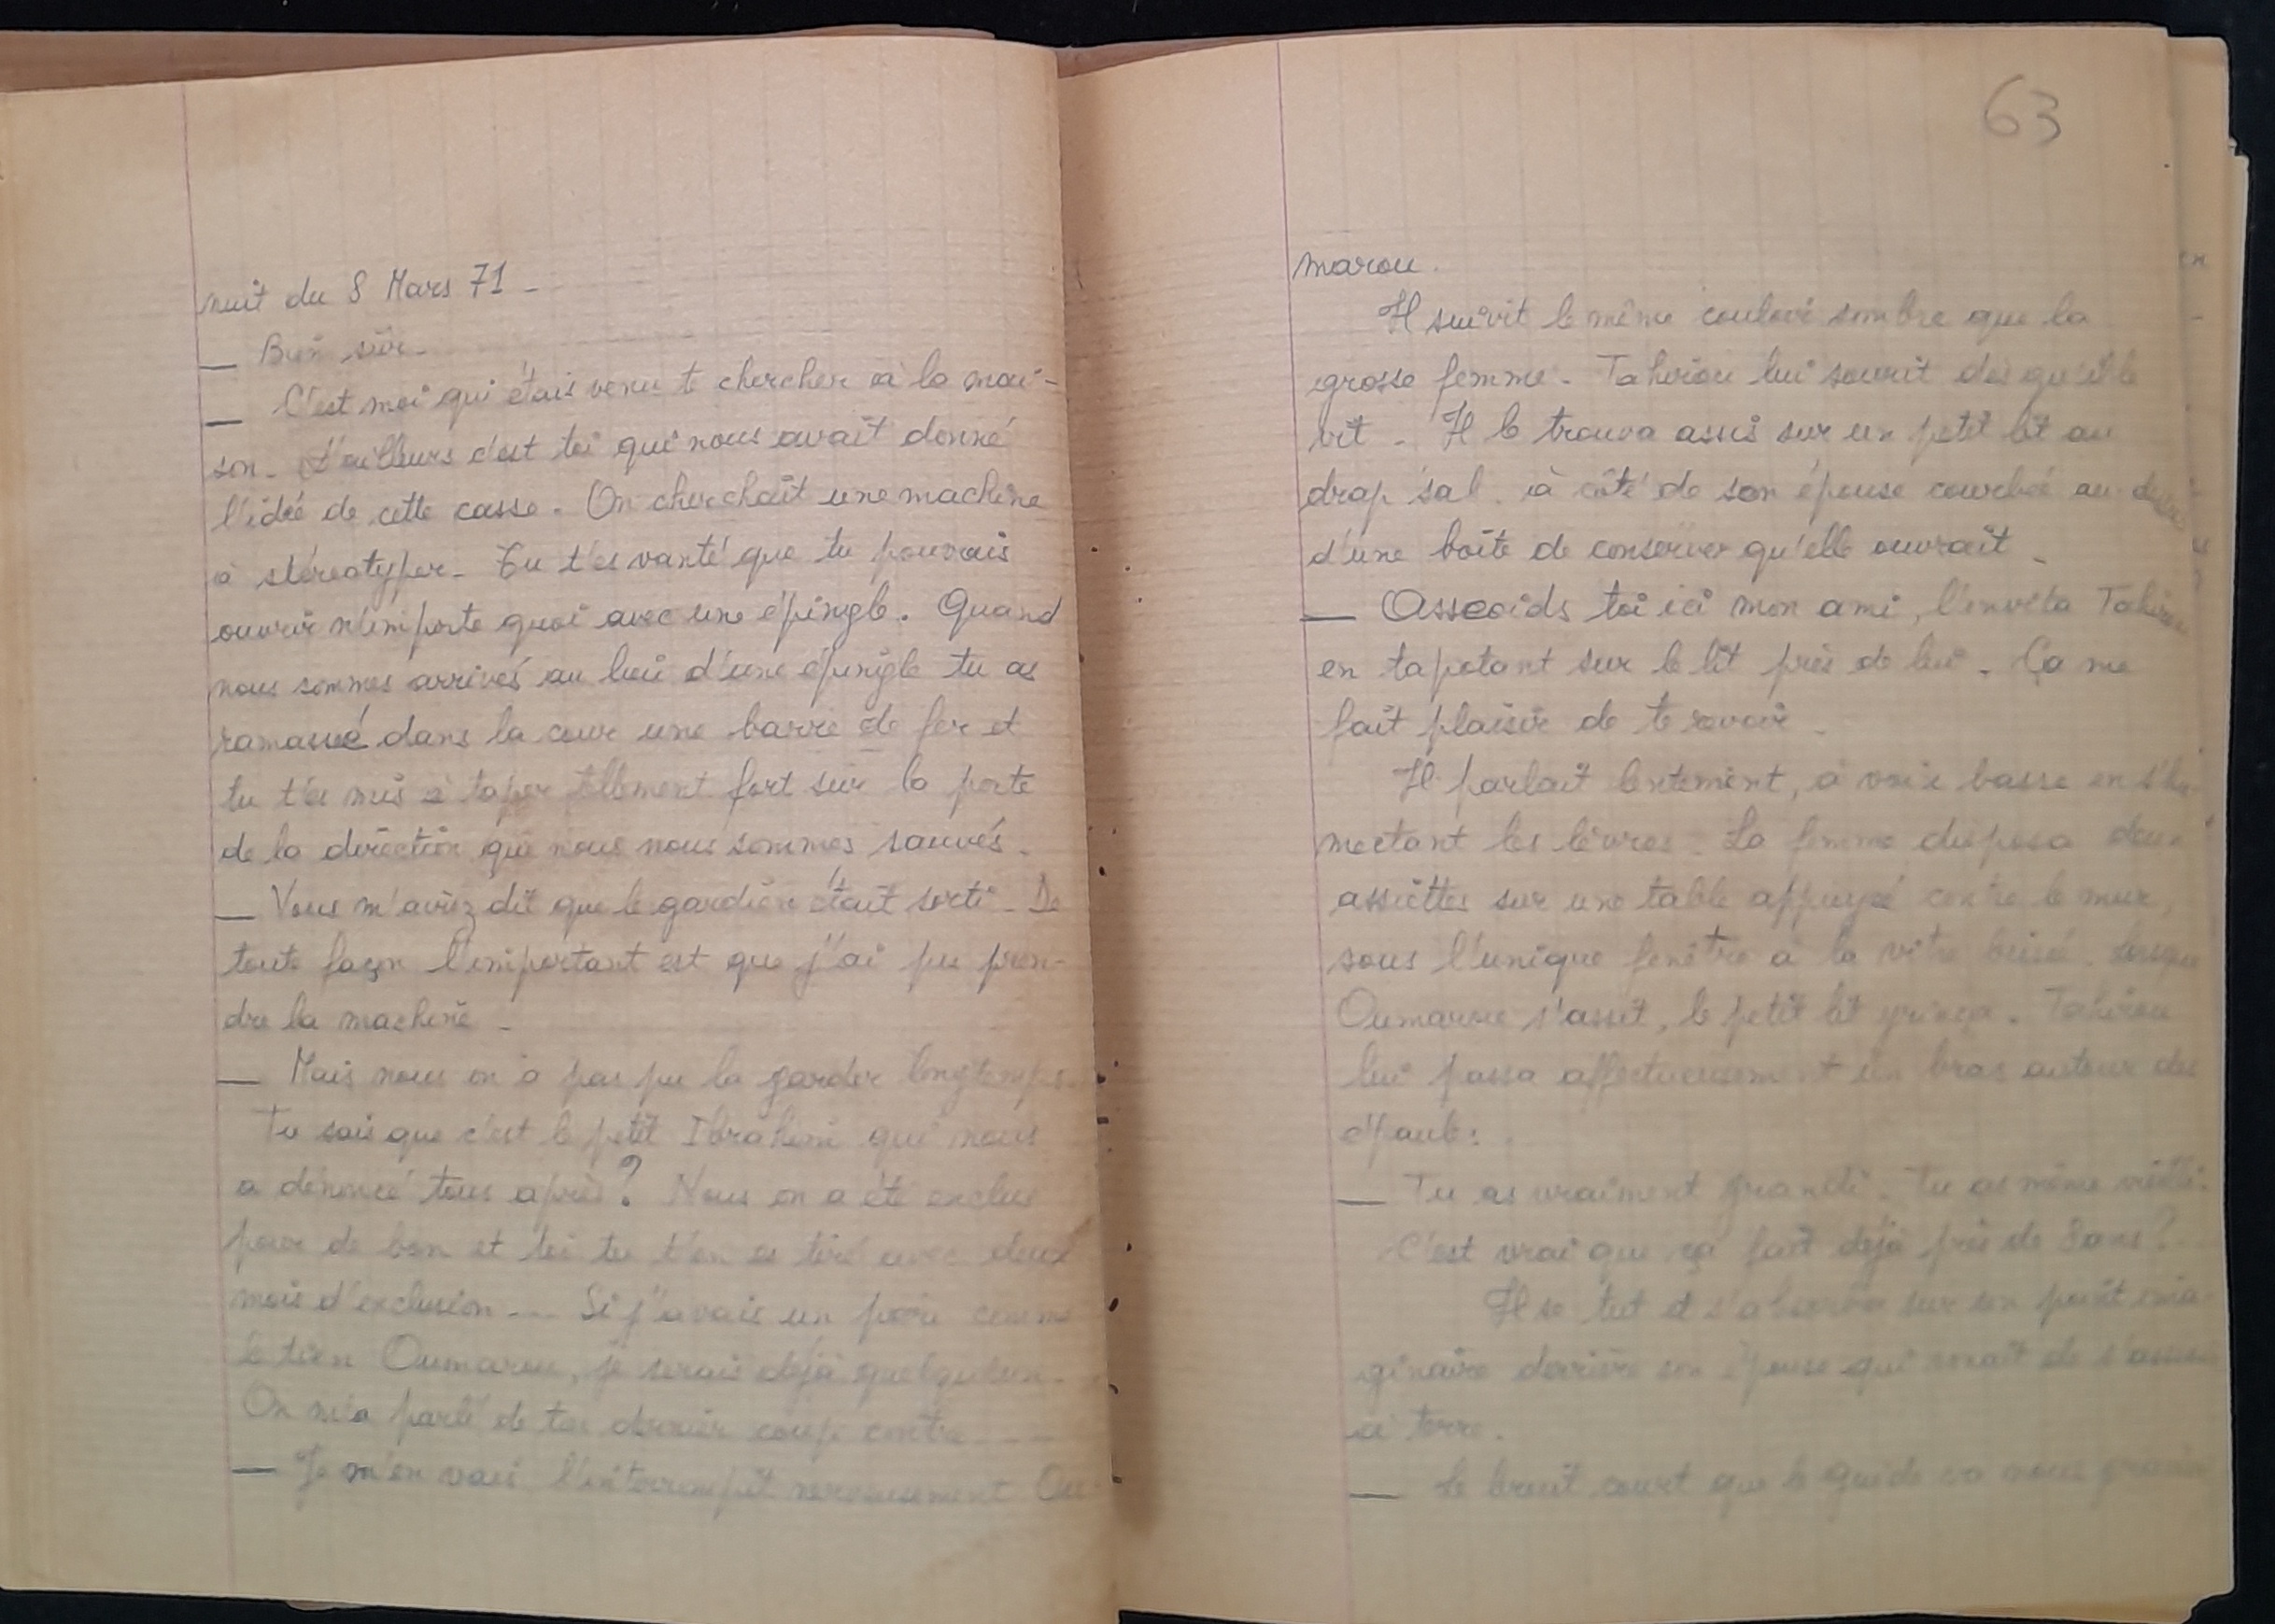 nuit du 8 Mars 71 -
— Bien sûr -
— C'est moi qui étais venu te chercher à la mai-
son - D'ailleurs c'est toi qui nous avait donné
l'idée de cette casse. On cherchait une machine
à stéréotyper - Tu t'es vanté que tu pouvais
ouvrir n'importe quoi avec une épingle. Quand
nous sommes arrivés au lieu d'une épingle tu as
ramassé dans la cour une barre de fer et
tu t'es mis à taper tellement fort sur la porte
de la direction que nous nous sommes sauvés -
— Vous m'aviez dit que le gardien était sorti - De
toute façon l'important est que j'ai pu pren-
dre la machine -
— Mais nous on a pas pu la garder longtemps
Tu sais que c'est le petit Ibrahim qui nous
a dénoncé tous après ? Nous on a été exclus
pour de bon et toi tu t'en es tiré avec deux
mois d'exclusion --- Si j'avais un père comme
le tien Oumarou, je serais déjà quelqu'un -
On m'a parlé de ton dernier coup contre ---
— Je m'en vais l'interrompit nerveusement Ou-
63
marou.
Il suivit le même couloir sombre que la
grosse femme - Tahirou lui sourit dès qu'il le
vit - Il le trouva assis sur un petit lit au
drap sal à côté de son épouse courbée au
d'une boîte de conserver qu'elle ouvrait -
— Asseoids toi ici mon ami, l'invita Tahirou
en tapotant sur le lit près de lui - Ça me
fait plaisir de te revoir -
Il parlait lentement, à voix basse en s'hu-
mectant les lèvres - La femme disposa deux
assiettes sur une table appuyée contre le mur,
sous l'unique fenêtre à la vitre brisée. Lorsque
Oumarou s'assit, le petit lit grinça. Tahirou
lui passa affectueusement un bras autour des
épaules.
— Tu as vraiment grandi. Tu as même vieilli.
C'est vrai que ça fait déjà près de 8 ans ?
Il se tut et s'absorba sur un point ima-
ginaire derrière son épouse qui venait de s'asseoir
à terre.
— Le bruit court que le guide va nous